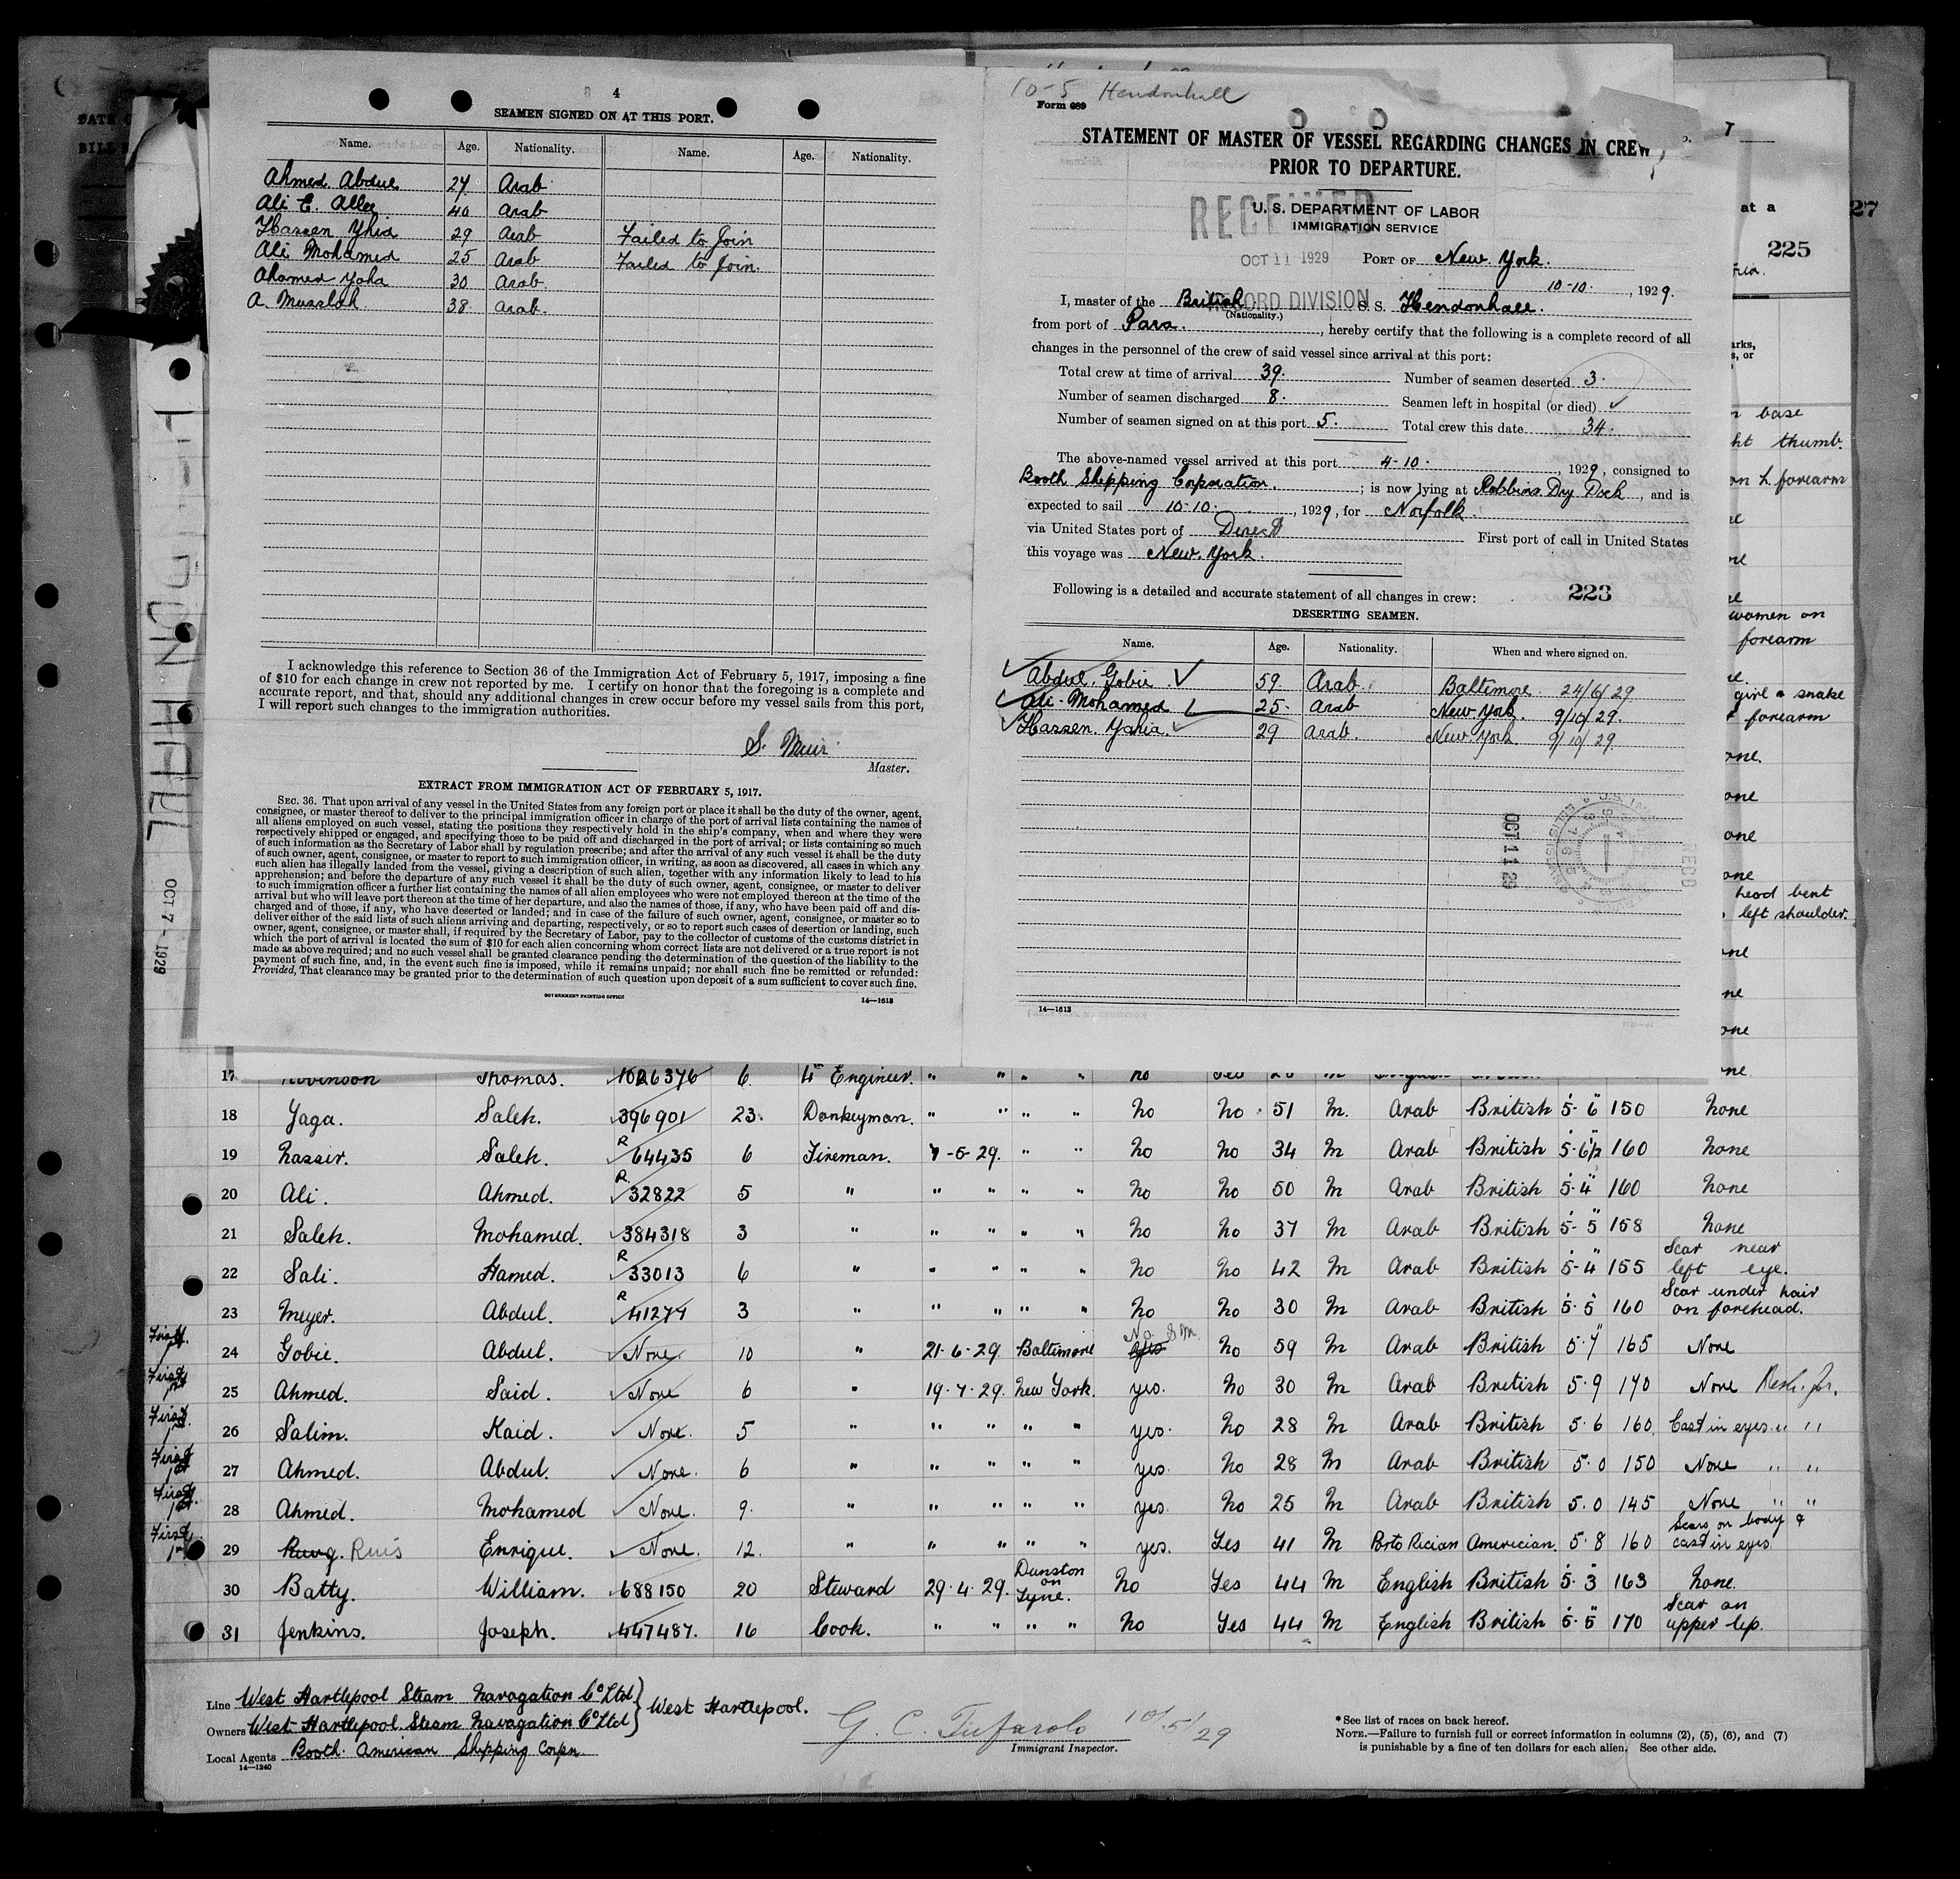 4
SEAMEN SIGNED ON AT THIS PORT.
Name. Age. Nationality. Name. Age. Nationality.
Ahmed Abdul 27 Arab
Ali E. Allee 40 Arab
Hassen Yhia 29 Arab Failed to Join
Ali Mohamed 25 Arab Failed to Join.
Ahamed Yaha 30 Arab.
A. Musslah 38 Arab.
I acknowledge this reference to Section 36 of the Immigration Act of February 5, 1917, imposing a fine
of $10 for each change in crew not reported by me. I certify on honor that the foregoing is a complete and
accurate report, and that, should any additional changes in crew occur before my vessel sails from this port,
I will report such changes to the immigration authorities.
S. Muir
Master.
EXTRACT FROM IMMIGRATION ACT OF FEBRUARY 5, 1917.
SEC. 36. That upon arrival of any vessel in the United States from any foreign port or place it shall be the duty of the owner, agent,
consignee, or master thereof to deliver to the principal immigration officer in charge of the port of arrival lists containing the names of
all aliens employed on such vessel, stating the positions they respectively hold in the ship's company, when and where they were
respectively shipped or engaged, and specifying those to be paid off and discharged in the port of arrival; or lists containing so much
of such information as the Secretary of Labor shall by regulation prescribe; and after the arrival of any such vessel it shall be the duty
of such owner, agent, consignee, or master to report to such immigration officer, in writing, as soon as discovered, all cases in which any
such alien has illegally landed from the vessel, giving a description of such alien, together with any information likely to lead to his
apprehension; and before the departure of any such vessel it shall be the duty of such owner, agent, consignee, or master to deliver
to such immigration officer a further list containing the names of all alien employees who were not employed thereon at the time of the
arrival but who will leave port thereon at the time of her departure, and also the names of those, if any, who have been paid off and dis-
charged and of those, if any, who have deserted or landed; and in case of the failure of such owner, agent, consignee, or master so to
deliver either of the said lists of such aliens arriving and departing, respectively, or so to report such cases of desertion or landing, such
owner, agent, consignee, or master shall, if required by the Secretary of Labor, pay to the collector of customs of the customs district in
which the port of arrival is located the sum of $10 for each alien concerning whom correct lists are not delivered or a true report is not
made as above required; and no such vessel shall be granted clearance pending the determination of the question of the liability to the
payment of such fine, and, in the event such fine is imposed, while it remains unpaid; nor shall such fine be remitted or refunded:
Provided, That clearance may be granted prior to the determination of such question upon deposit of a sum sufficient to cover such fine.
GOVERNMENT PRINTING OFFICE 14—1613
10-5 Hendonhall
Form 689
STATEMENT OF MASTER OF VESSEL REGARDING CHANGES IN CREW
PRIOR TO DEPARTURE.
RECEIVED
U. S. DEPARTMENT OF LABOR
IMMIGRATION SERVICE
OCT 11 1929 PORT OF New York.
10-10. , 1929.
RECORD DIVISION
I, master of the British S. S. Hendonhall.
(Nationality.)
from port of Para. , hereby certify that the following is a complete record of all
changes in the personnel of the crew of said vessel since arrival at this port:
Total crew at time of arrival 39. Number of seamen deserted 3.
Number of seamen discharged 8. Seamen left in hospital (or died) ✓
Number of seamen signed on at this port 5. Total crew this date 34.
The above-named vessel arrived at this port 4-10. , 1929, consigned to
Booth Shipping Corporation. ; is now lying at Robbins Dry Dock , and is
expected to sail 10-10. , 1929, for Norfolk.
via United States port of Direct First port of call in United States
this voyage was New York.
Following is a detailed and accurate statement of all changes in crew: 223
DESERTING SEAMEN.
Name. Age. Nationality. When and where signed on.
Abdul. Gobie. 59 Arab. Baltimore 24/6/29
Ali Mohamed 25. Arab New York. 9/10/29.
Hassen. Yahia. 29 Arab. New York. 9/10/29.
OCT 11 29
RECD
14—1613
HENDON HALL
OCT 7 - 1929
at a
225
27
base
thumb.
on L forearm
women on
forearm
girl & snake
forearm
head bent
left shoulder.
17 Robinson Thomas. 1026376 6. 4th Engineer. " " " " no Yes
18 Yaga. Saleh. 396901 23. Donkeyman. " " " " No No 51 M. Arab British 5-6 150 None
19 Nassir. Saleh. R 64435 6 Fireman. 7-5-29. " " No No 34 M Arab British 5-6½ 160 None
20 Ali. Ahmed. R 32822 5 " " " " " No No 50 M Arab British 5-4 160 None
21 Saleh. Mohamed. 384318 3 " " " " " No No 37 M Arab British 5-5 158 None
22 Sali. Hamed. R 33013 6 " " " " " No No 42 M Arab British 5-4 155 Scar near left eye.
23 Meyer. Abdul. R 41274 3 " " " " " No No 30 M Arab British 5-5 160 Scar under hair on forehead.
First 24 Gobie. Abdul. None. 10 " 21-6-29. Baltimore No SM. yes No 59 M Arab British 5-7 165 None
First 25 Ahmed. Said. None 6 " 19-7-29. New York. yes. No 30 M Arab British 5.9 170 None
First 26 Salim. Kaid. None. 5 " " " " " yes. No 28 M Arab British 5.6 160. Cast in eyes. " "
First 27 Ahmed. Abdul. None. 6 " " " " " yes. No 28 M Arab British 5.0 150 None " "
First 28 Ahmed. Mohamed None. 9. " " " " " yes. No 25 M Arab British 5.0 145 None " "
First 29 Ruis Enrique. None. 12. " " " " " yes. Yes 41 M Porto Rician Americian. 5.8 160 Scars on body & cast in eyes.
30 Batty. William. 688150 20 Steward 29-4-29. Dunston on Tyne. No Yes 44 M English British 5-3 163 None.
31 Jenkins. Joseph. 447487. 16 Cook. " " " " No Yes 44 M English British 5-5 170 Scar on upper lip.
Line West Hartlepool Steam Navagation Co Ltd
Owners West Hartlepool Steam Navagation Co Ltd } West Hartlepool.
Local Agents Booth American Shipping Corpn
14—1240
G. C. Tufarolo 10/5/29
Immigrant Inspector.
*See list of races on back hereof.
NOTE.—Failure to furnish full or correct information in columns (2), (5), (6), and (7)
is punishable by a fine of ten dollars for each alien. See other side.